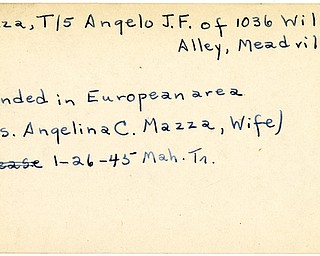 zza, T/5 Angelo J.F. of 1036 Wil
Alley, Meadvil
nded in European area
s. Angelina C. Mazza, Wife)
ease 1-26-45 Mah. Tr.